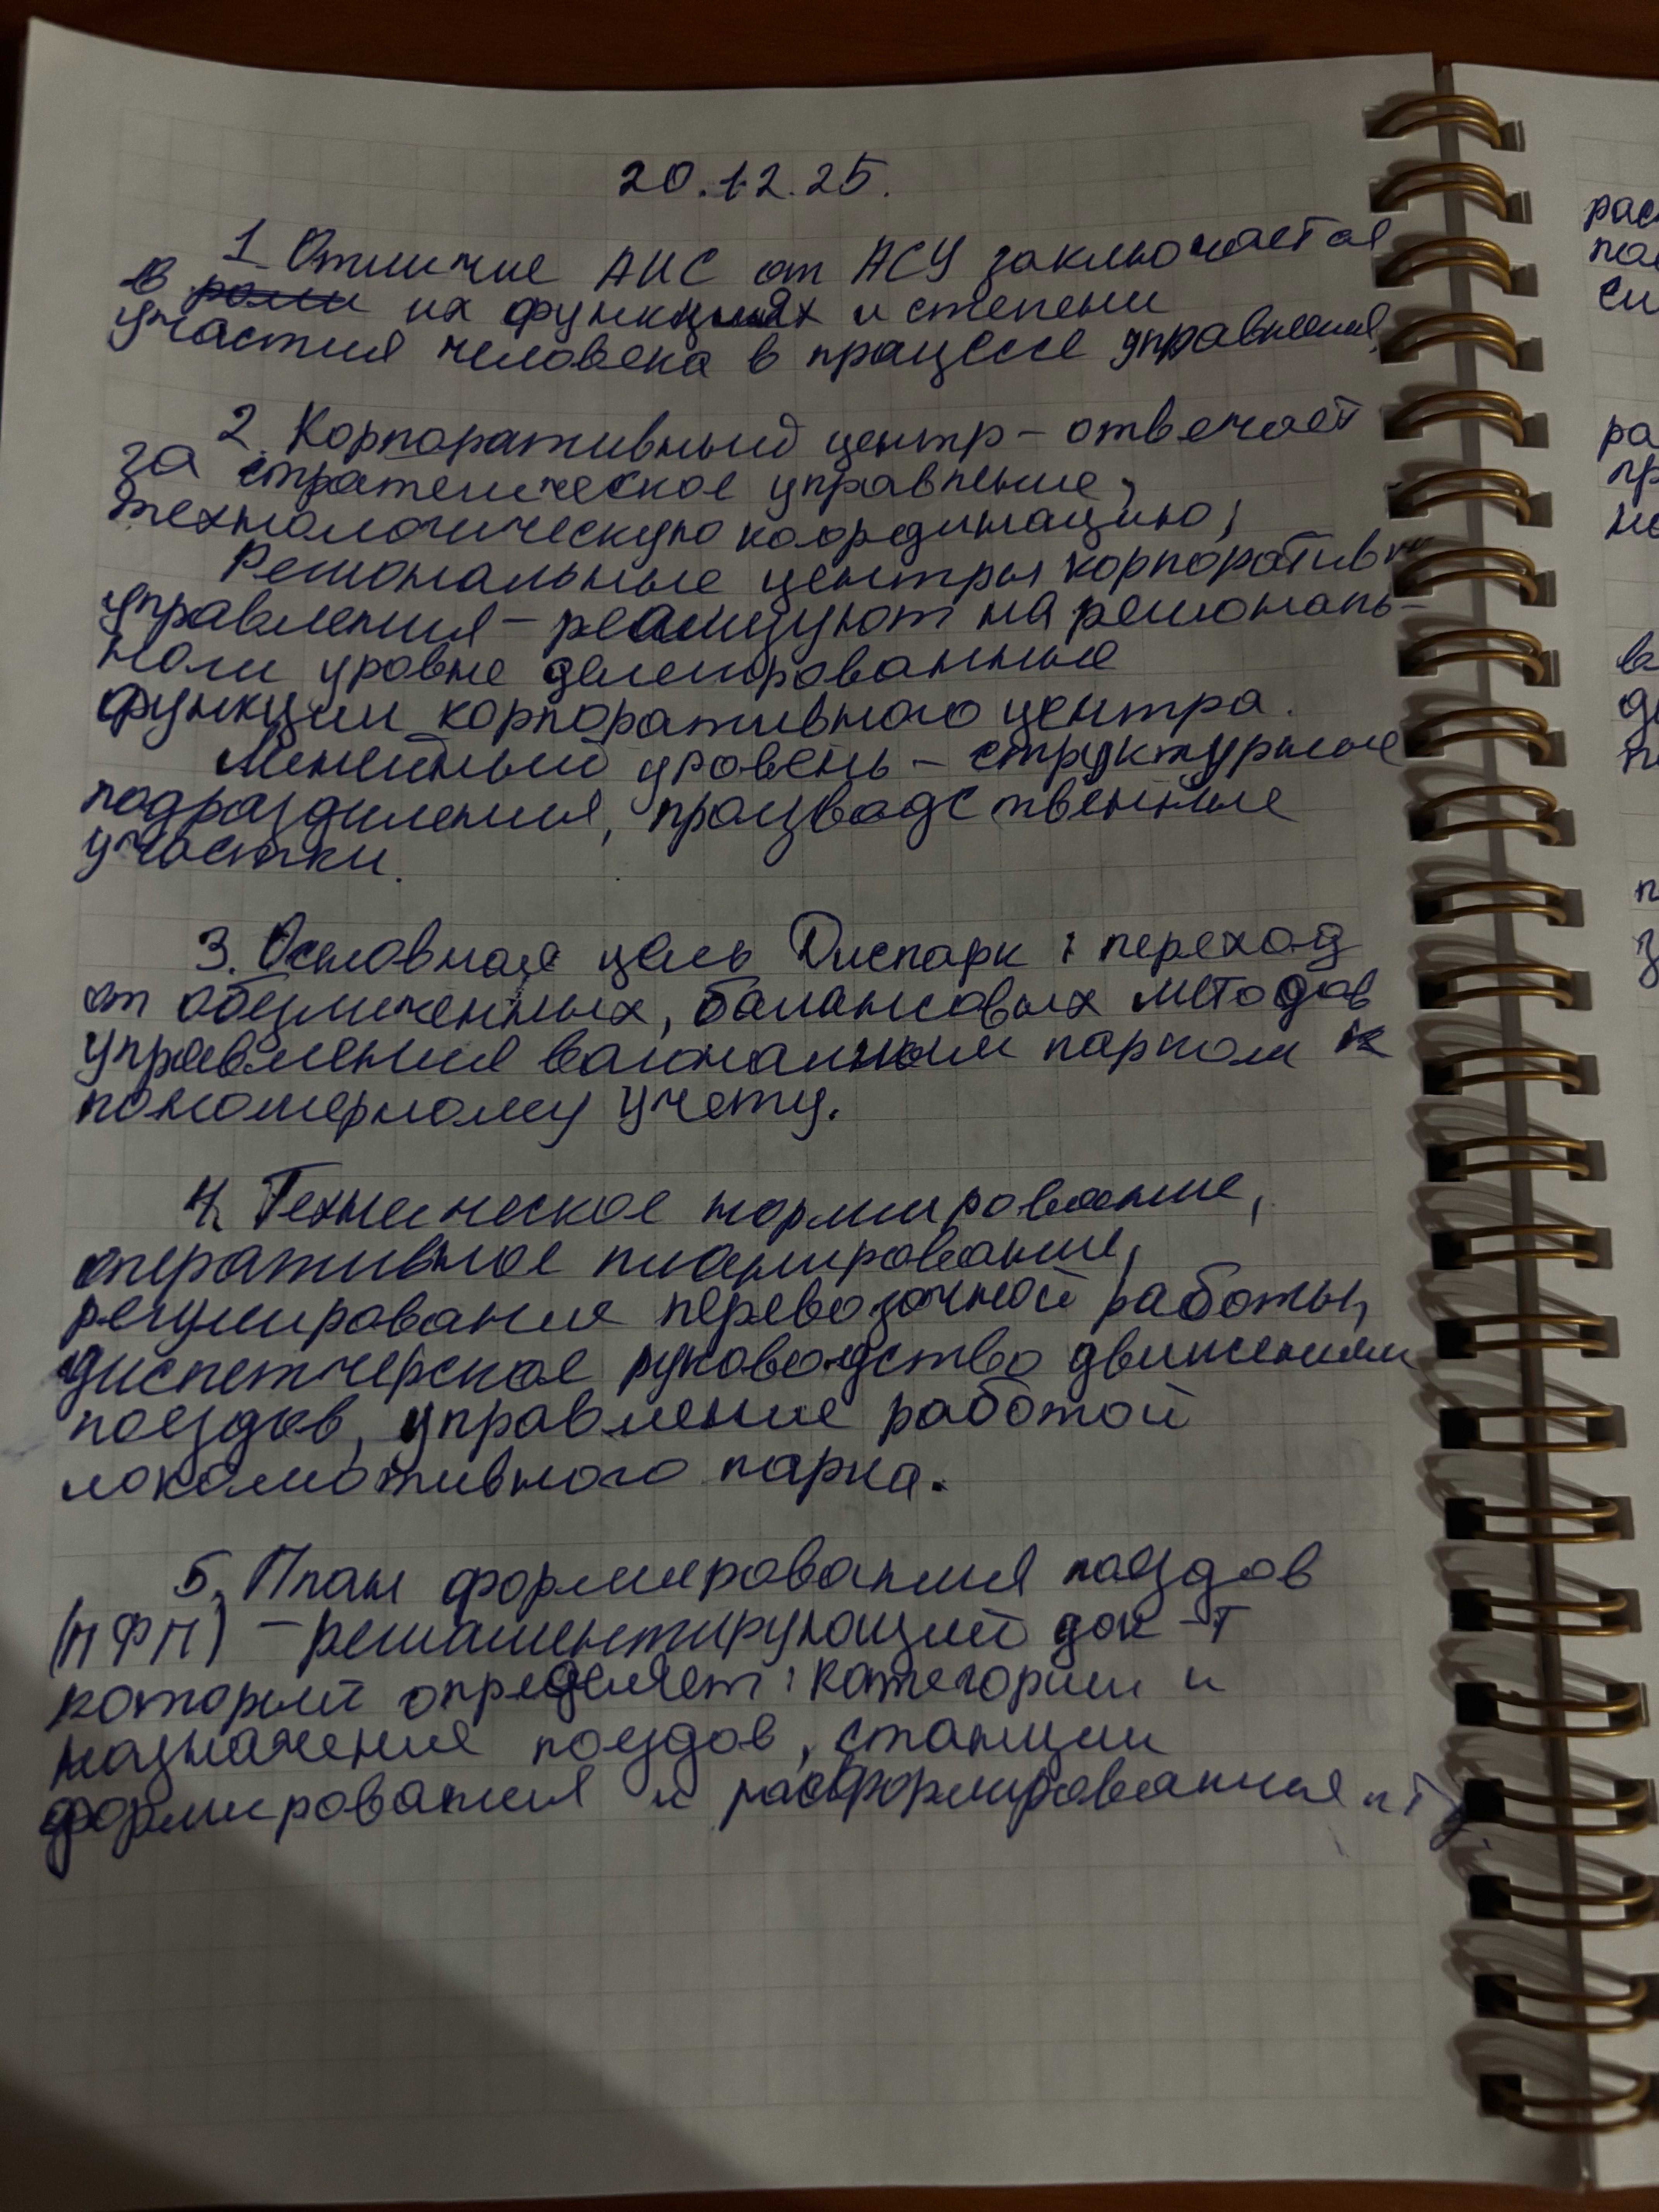 20.12.25.
1. Отличие АИС от АСУ заключается
в роли их функциях и степени
участия человека в процессе управления.
2. Корпоративный центр - отвечает
за стратегическое управление,
технологическую координацию;
Региональные центры корпоративн
управления - реализуют на региональ-
ном уровне делегированные
функции корпоративного центра.
Линейный уровень - структурные
подразделения, производственные
участки.
3. Основная цель Диспарк: переход
от обезличенных, балансовых методов
управления вагонным парком к
пономерному учету.
4. Техническое нормирование,
оперативное планирование,
регулирования перевозочной работы,
диспетчерское руководство движением
поездов, управление работой
локомотивного парка.
5. План формирования поездов
(ПФП) - регламентирующий док-т
который определяет: категории и
назначения поездов, станции
формирования и расформирования
рас
ра
пр
в
п